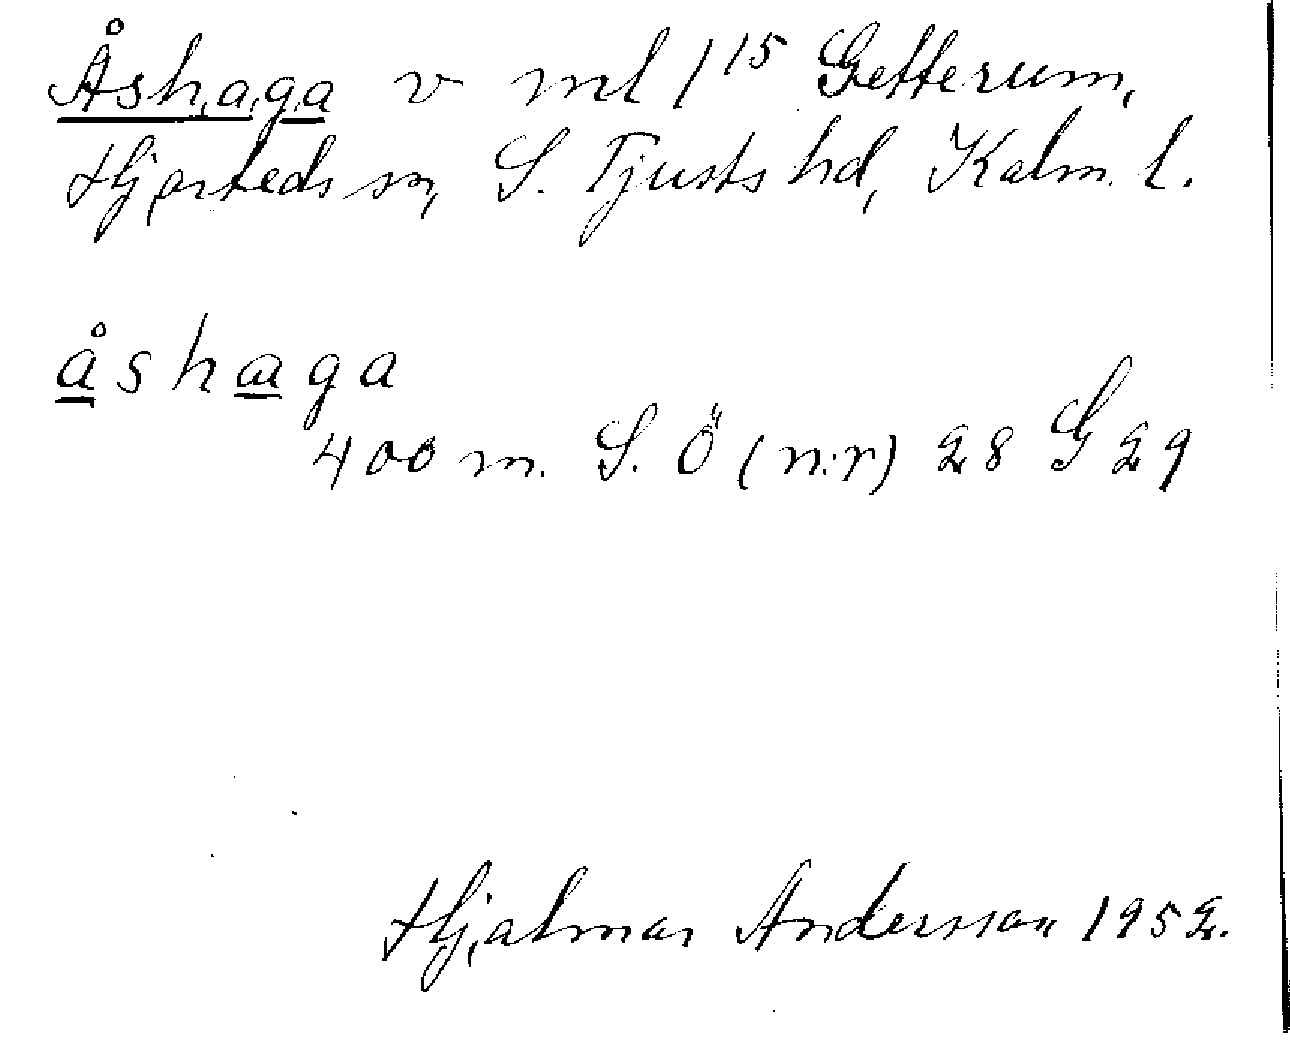 Åshaga v ml 1¹⁵ Getterum,
Hjorteds sn, S. Tjusts hd, Kalm. l.
åshaga
400 m. S. Ö (n:r) 28 G 29
Hjalmar Andersson 1952.